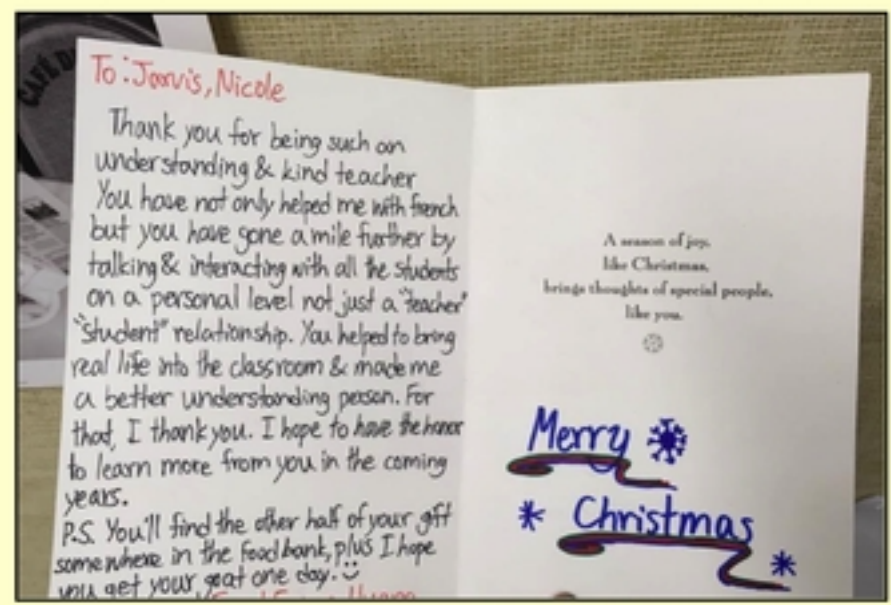 CAFÉ
To: Jarvis, Nicole
Thank you for being such an
understanding & kind teacher
You have not only helped me with french
but you have gone a mile further by
talking & interacting with all the students
on a personal level not just a "teacher"
"student" relationship. You helped to bring
real life into the classroom & made me
a better understanding person. For
that, I thank you. I hope to have the honor
to learn more from you in the coming
years.
P.S. You'll find the other half of your gift
somewhere in the food bank, plus I hope
you get your goat one day.
A season of joy,
like Christmas,
brings thoughts of special people,
like you.
Merry
Christmas